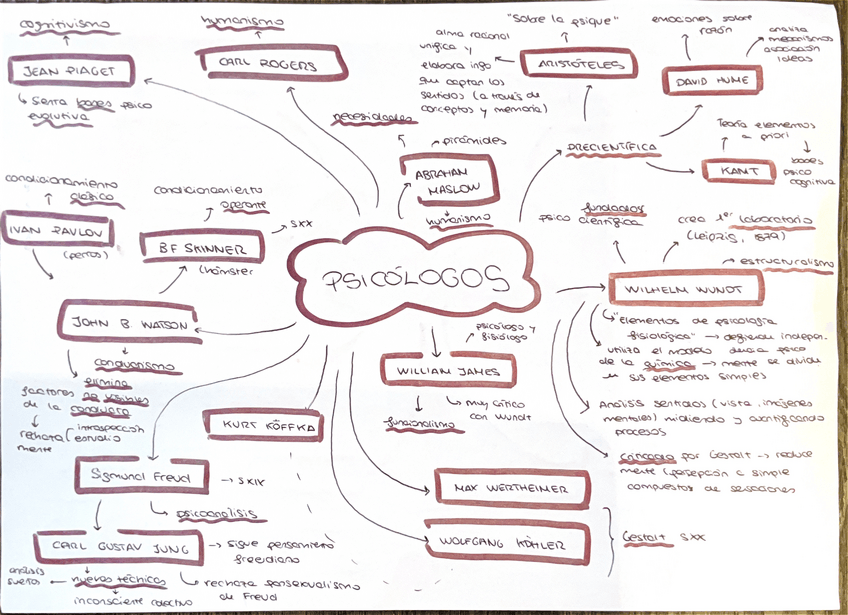 PSICÓLOGOS
cognitivismo
JEAN PIAGET
sienta bases psico
evolutiva
humanismo
CARL ROGERS
necesidades
pirámides
ABRAHAM
MASLOW
humanismo
"Sobre la psique"
ARISTÓTELES
alma racional
unifica y
elabora info
que captan los
sentidos (a través de
conceptos y memoria)
PRECIENTÍFICA
emociones sobre
razón
DAVID HUME
analiza
mecanismos
asociación
ideas
Teoría elementos
a priori
KANT
bases
psico
cognitiva
fundador
psico científica
crea 1er laboratorio
(Leipzig, 1879)
estructuralismo
WILHELM WUNDT
"elementos de psicología
fisiológica" → defiende indepen.
utiliza el modelo
de la química → mente se divide
en sus elementos simples
Análisis sentidos (vista, imágenes
mentales) midiendo y
procesos
criticado por Gestalt → reduce
mente (percepción a simple
compuestos de sensaciones
psicólogo y
fisiólogo
WILLIAM JAMES
funcionalismo
muy crítico
con Wundt
KURT KÖFFKA
MAX WERTHEIMER
WOLFGANG KÖHLER
Gestalt SXX
condicionamiento
clásico
IVAN PAVLOV
(perros)
condicionamiento
operante
BF SKINNER
SXX
(hámster
JOHN B. WATSON
conductismo
elimina
factores no visibles
de la conducta
rechaza
mente
introspección
estudio
Sigmund Freud
→ SXIX
psicoanálisis
CARL GUSTAV JUNG
→ sigue pensamiento
freudiano
rechaza pansexualismo
de Freud
nuevas técnicas
análisis
sueños
inconsciente colectivo